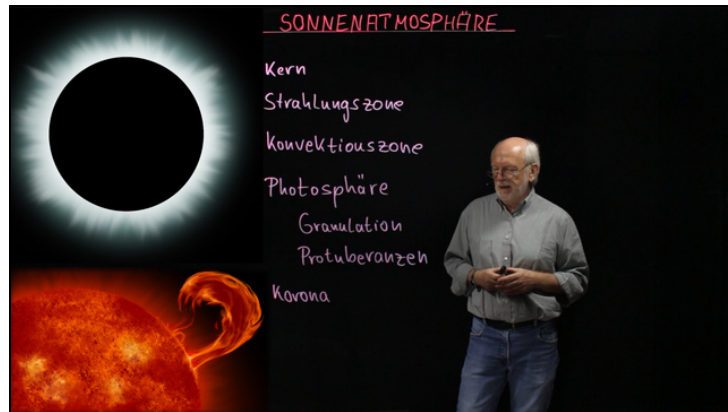 SONNENATMOSPHÄRE
Kern
Strahlungszone
Konvektionszone
Photosphäre
Granulation
Protuberanzen
Korona